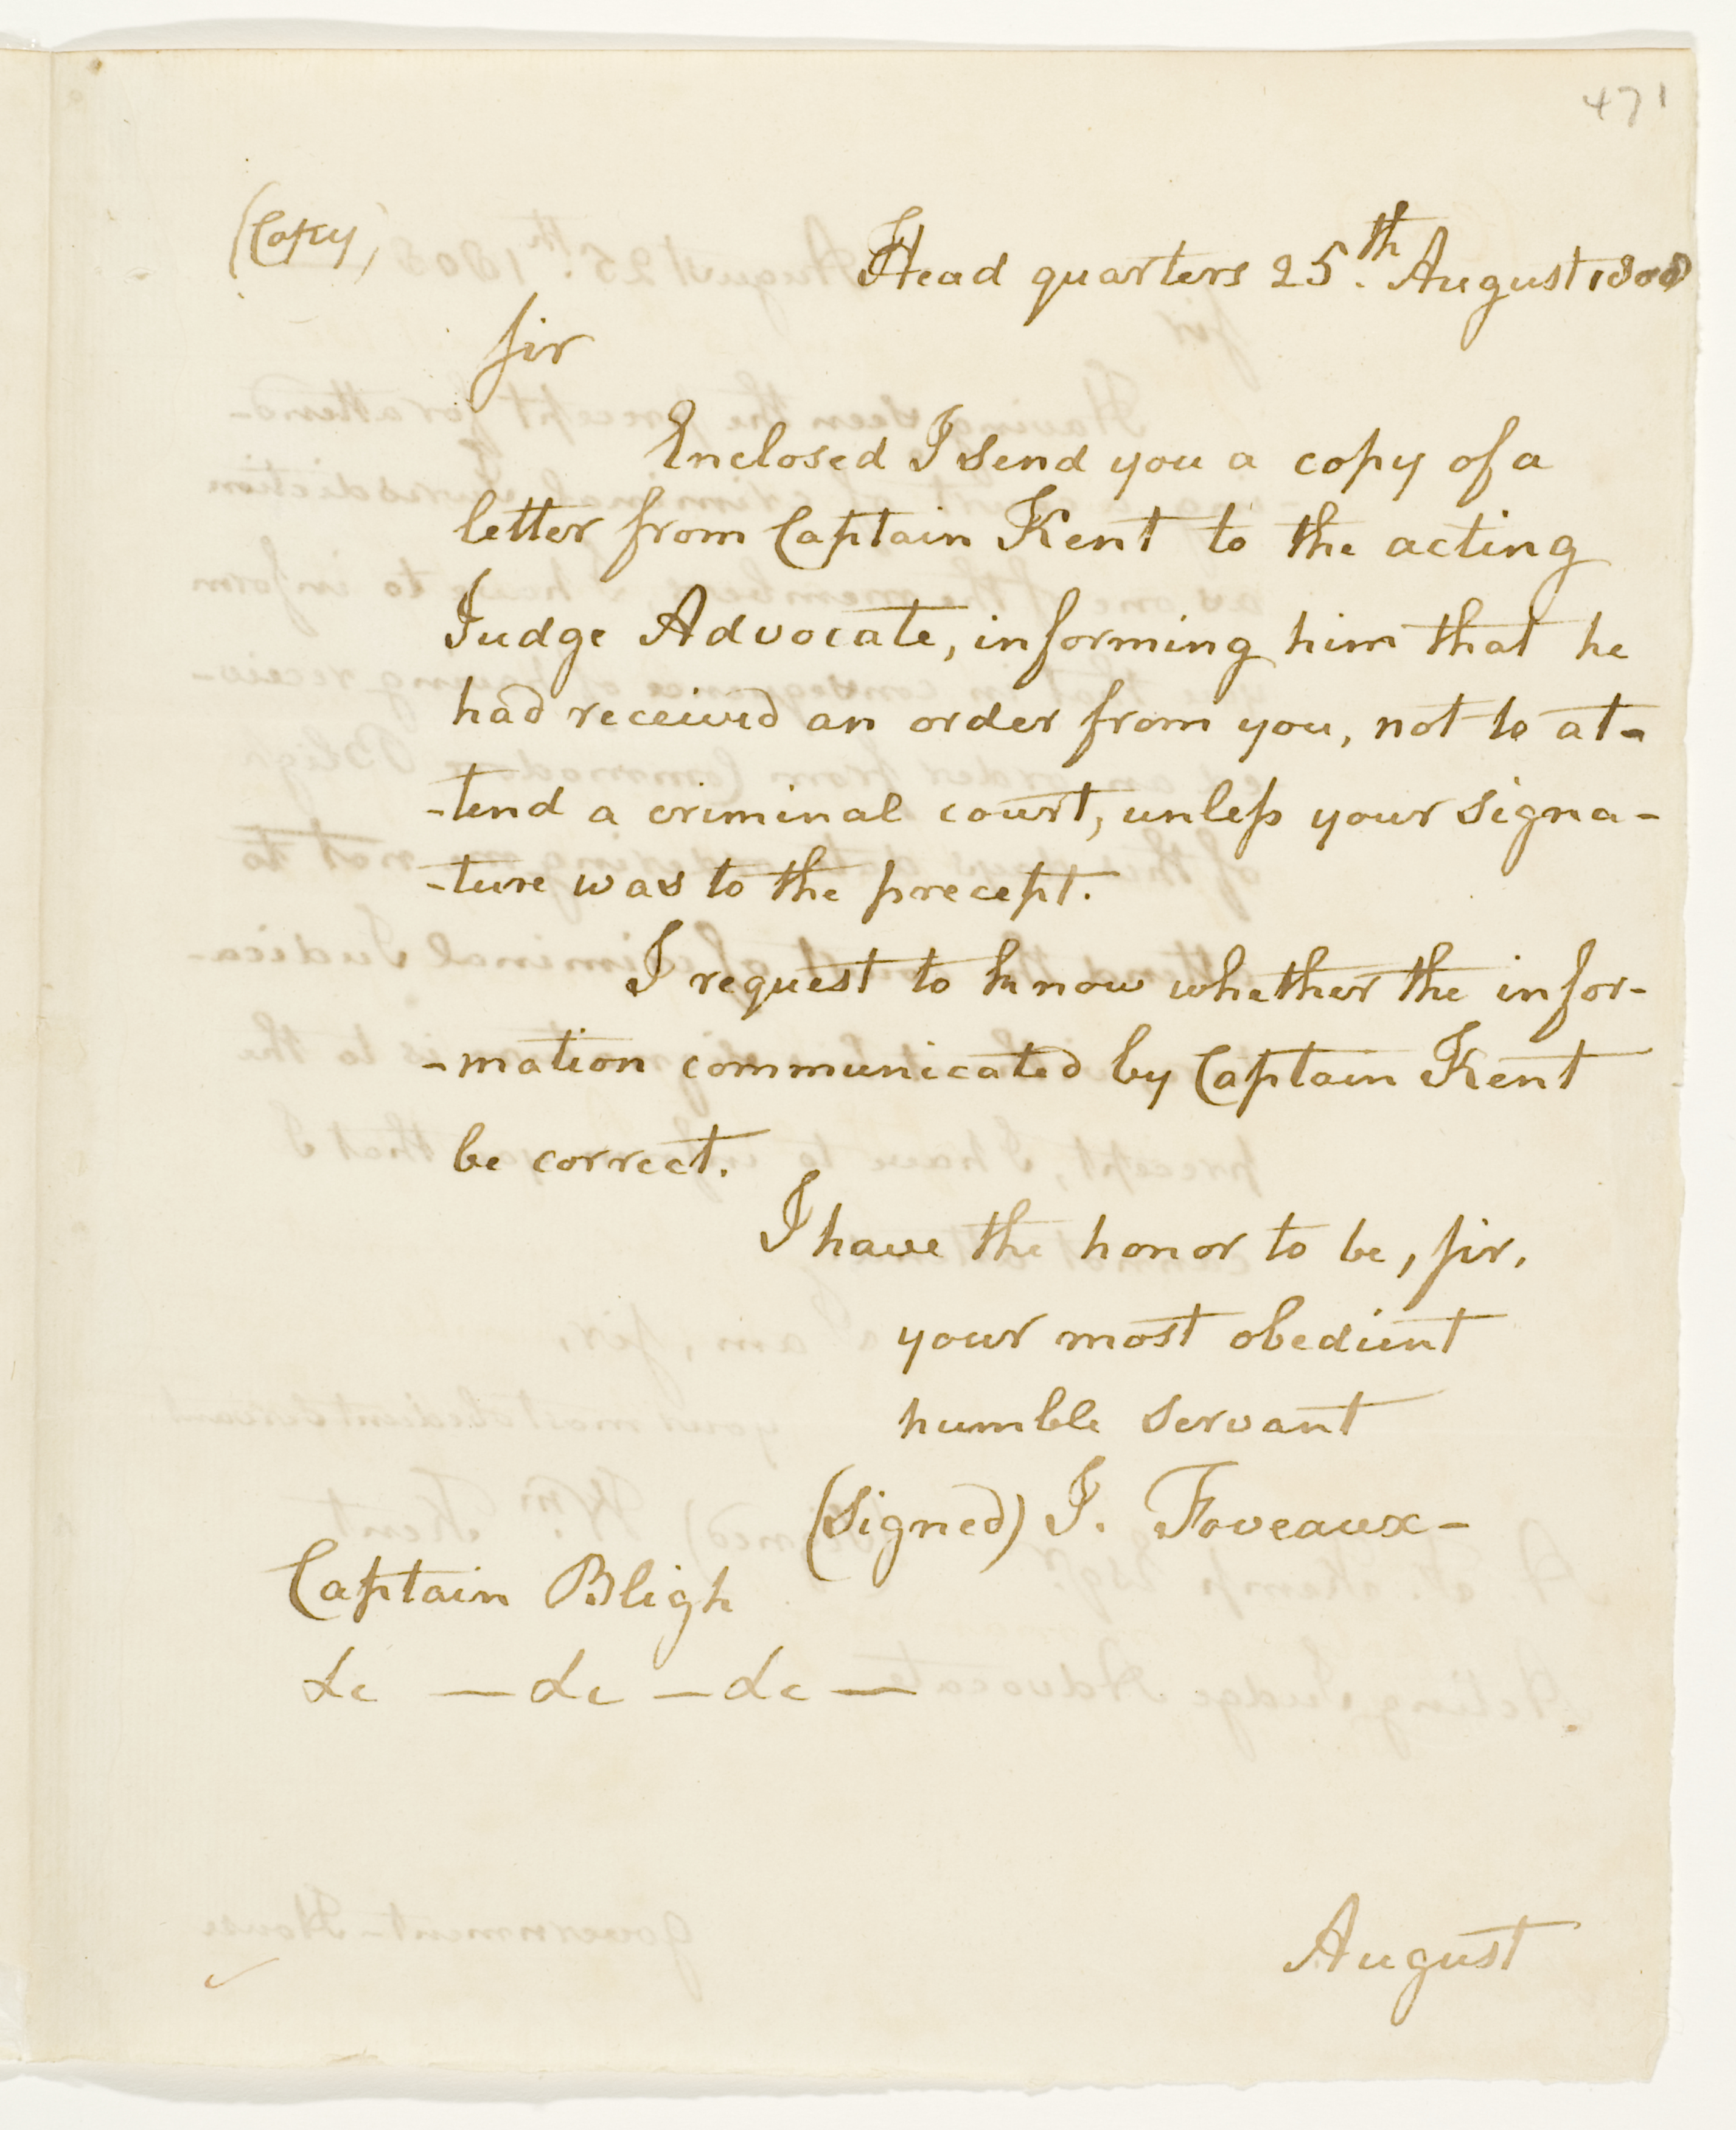 471
(Copy)
Head quarters 25th. August 1808
Sir
Enclosed I send you a copy of a
letter from Captain Kent to the acting
Judge Advocate, informing him that he
had received an order from you, not to at-
-tend a criminal court, unless your signa-
-ture was to the precept.
I request to know whether the infor-
-mation communicated by Captain Kent
be correct.
I have the honor to be, Sir,
your most obedient
humble servant
(Signed) J. Foveaux-
Captain Bligh
&c — &c — &c —
August